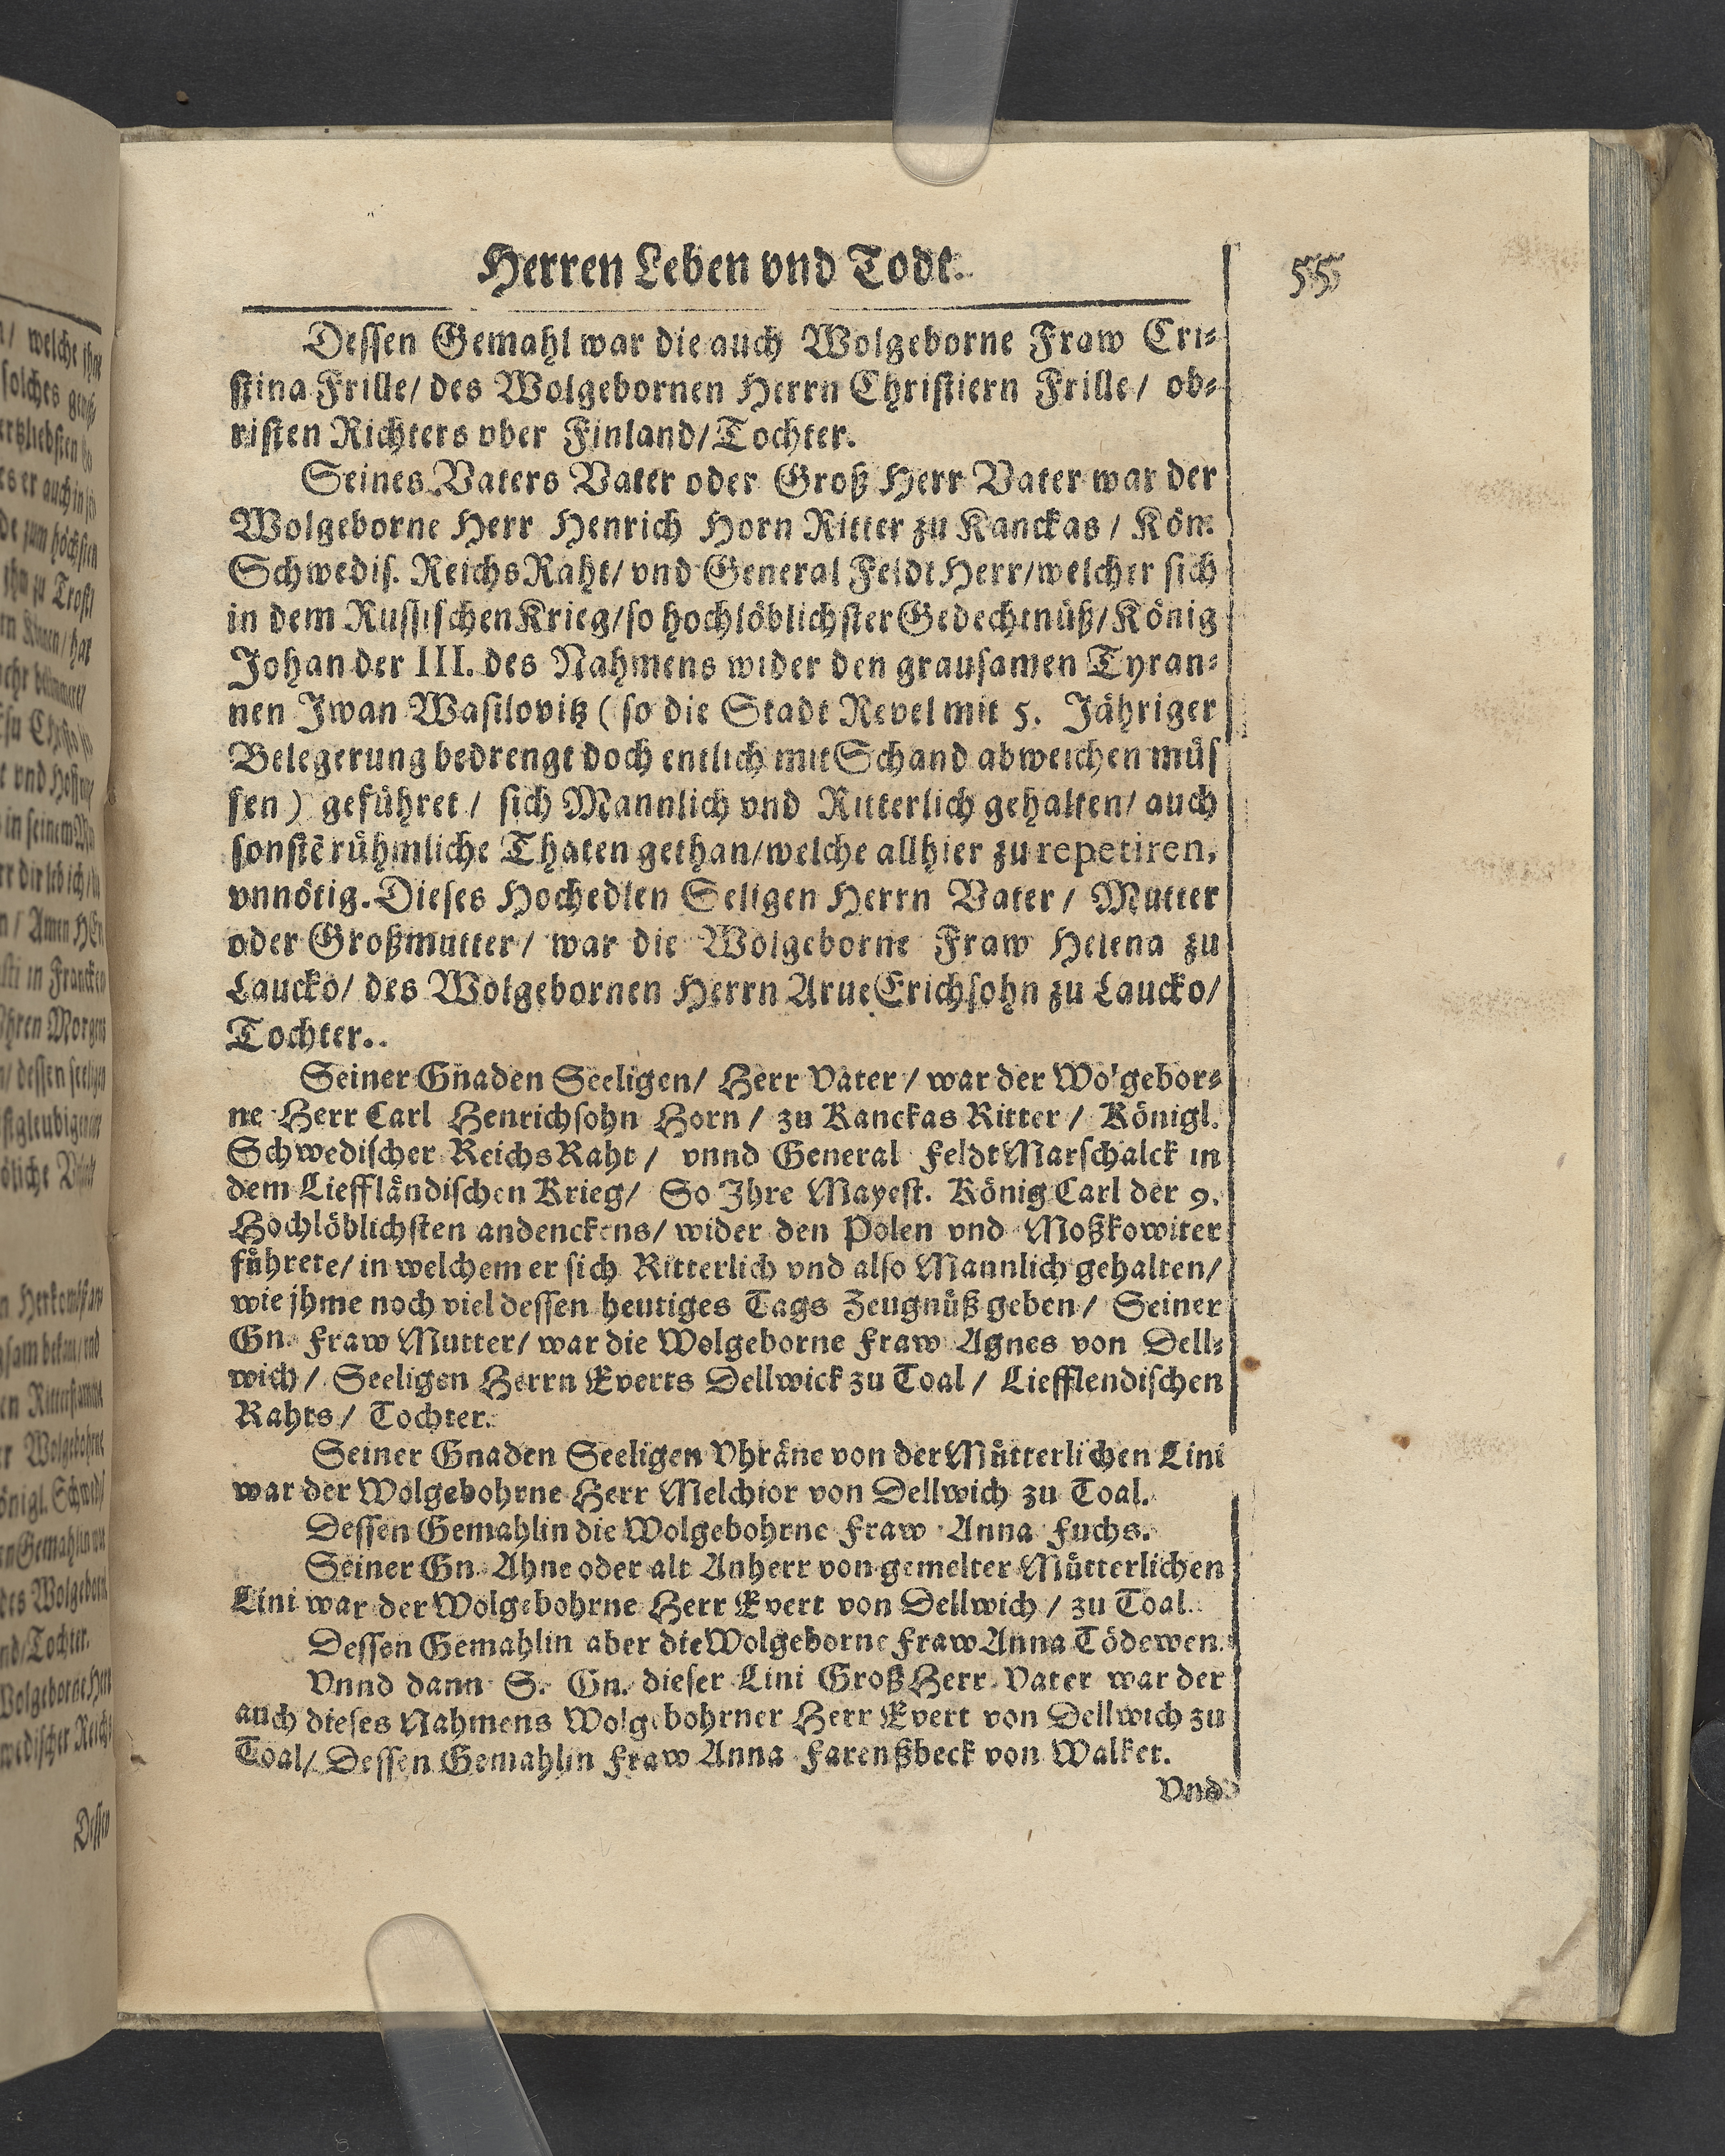 Herren Leben vnd Todt.
55
Dessen Gemahl war die auch Wolgeborne Fraw Cri-
stina Frille/ des Wolgebornen Herrn Christiern Frille/ ob-
risten Richters vber Finland/ Tochter.
Seines Vaters Vater oder Groß Herr Vater war der
Wolgeborne Herr Henrich Horn Ritter zu Kanckas / Kön.
Schwedis. ReichsRaht/ vnd General FeldtHerr/welcher sich
in dem Russischen Krieg/so hochlöblichster Gedechtnüß/König
Johan der III. des Nahmens wider den grausamen Tyran-
nen Jwan Wasilovitz ( so die Stadt Revel mit 5. Jähriger
Belegerung bedrengt doch entlich mit Schand abweichen müs
sen ) geführet / sich Mannlich vnd Ritterlich gehalten/ auch
sonstẽ rühmliche Thaten gethan/welche allhier zu repetiren,
vnnötig. Dieses Hochedlen Seligen Herrn Vater / Mutter
oder Großmutter/ war die Wolgeborne Fraw Helena zu
Laucko/ des Wolgebornen Herrn Arue Erichsohn zu Laucko/
Tochter..
Seiner Gnaden Seeligen/ Herr Vater / war der Wolgebor-
ne Herr Carl Henrichsohn Horn / zu Kanckas Ritter / Königl.
Schwedischer ReichsRaht / vnnd General FeldtMarschalck in
dem Liefflåndischen Krieg/ So Jhre Mayest. König Carl der 9.
Hochlöblichsten andenckens/ wider den Polen vnd Moßkowiter
führete/ in welchem er sich Ritterlich vnd also Mannlich gehalten/
wie jhme noch viel dessen heutiges Tags Zeugnüß geben/ Seiner
Gn. Fraw Mutter/ war die Wolgeborne Fraw Agnes von Dell-
wich / Seeligen Herrn Everts Dellwick zu Toal / Liefflendischen
Rahts / Tochter.
Seiner Gnaden Seeligen Vhräne von der Mütterlichen Lini
war der Wolgebohrne Herr Melchior von Dellwich zu Toal.
Dessen Gemahlin die Wolgebohrne Fraw Anna Fuchs.
Seiner Gn. Ahne oder alt Anherr von gemelter Mütterlichen
Lini war der Wolgebohrne Herr Evert von Dellwich / zu Toal.
Dessen Gemahlin aber die Wolgeborne Fraw Anna Tödewen.
Vnnd dann S. Gn. dieser Lini Groß Herr Vater war der
auch dieses Nahmens Wolgebohrner Herr Evert von Dellwich zu
Toal/ Dessen Gemahlin Fraw Anna Farenßbeck von Walket.
Vnd